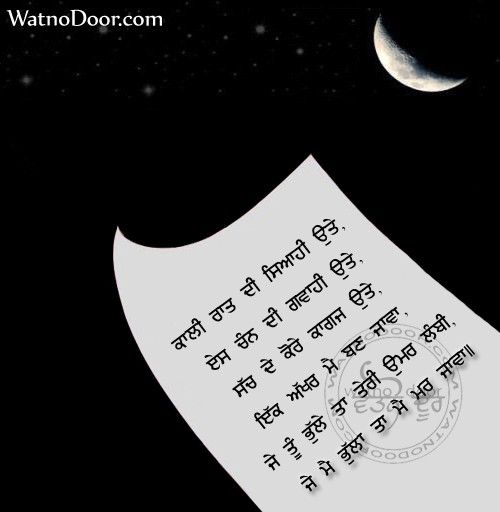 WatnoDoor.com
ਕਾਲੀ ਰਾਤ ਦੀ ਸਿਆਹੀ ਉਤੇ,
ਏਸ ਚੰਨ ਦੀ ਗਵਾਹੀ ਉਤੇ,
ਸੱਚ ਦੇ ਕੋਰੇ ਕਾਗਜ ਉਤੇ,
ਇਕ ਅੱਖਰ ਮੈ ਬਣ ਜਾਵਾ,
ਜੇ ਤੂੰ ਭੁੱਲੇ ਤਾ ਤੇਰੀ ਉਮਰ ਲੰਬੀ,
ਜੇ ਮੈ ਭੁੱਲਾ ਤਾ ਮੈ ਮਰ ਜਾਵਾ॥